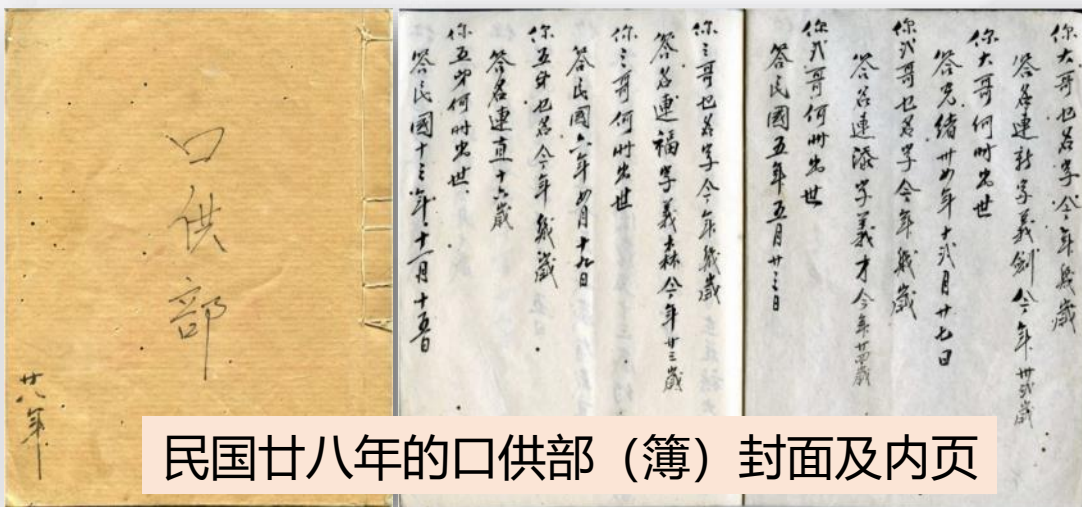 口供部
廿八年
你大哥乜名字今年几歲
答名連新字義創今年卅弍歲
你大哥何时出世
答光緒卅四年十弍月廿七日
你弍哥乜名字今年几歲
答名連添字義才今年廿四歲
你弍哥何时出世
答民國五年五月廿三日
你三哥乜名字今年几歲
答名連福字義森今年廿三歲
你三哥何时出世
答民國六年四月十九日
你五弟乜名今年几歲
答名連直十六歲
你五弟何时出世
答民國十三年十一月十五日
民国廿八年的口供部（簿）封面及内页